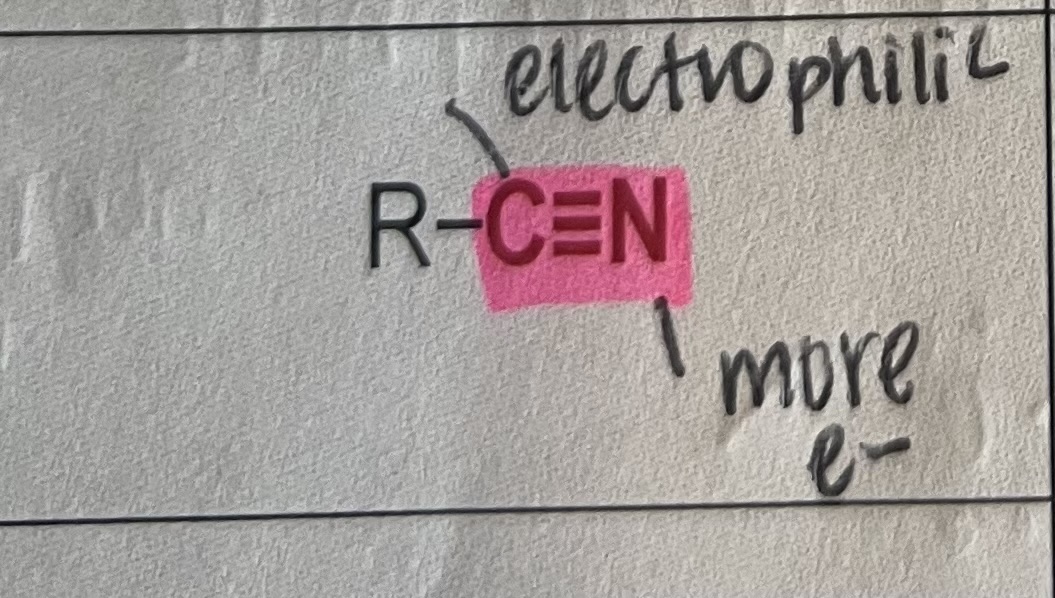 electrophilic
R-C≡N
more
e-